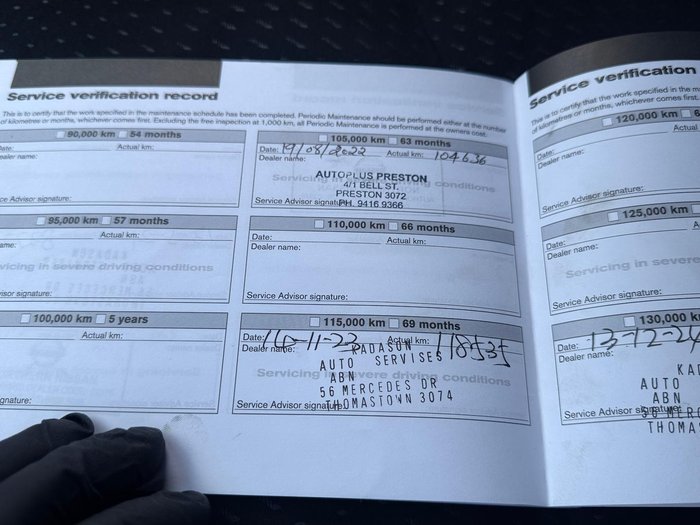 Service verification record
This is to certify that the work specified in the maintenance schedule has been completed. Periodic Maintenance should be performed either at the number
of kilometres or months, whichever comes first. Excluding the free inspection at 1,000 km, all Periodic Maintenance is performed at the owners cost.
90,000 km 54 months
Date: Actual km:
ealer name:
ce Advisor signature:
95,000 km 57 months
Actual km:
ame:
vicing in severe driving conditions
isor signature:
100,000 km 5 years
Actual km:
gnature:
105,000 km 63 months
Date: 19/08/2022 Actual km: 104636
Dealer name:
AUTOPLUS PRESTON
Servicing conditions
4/1 BELL ST.
PRESTON 3072
Service Advisor signature: PH. 9416 9366
110,000 km 66 months
Date: Actual km:
Dealer name:
Service Advisor signature:
115,000 km 69 months
Date: 14-11-23 Actual km: 118535
Dealer name: KADASON
AUTO SERVISES
Servicing in severe driving conditions
ABN
56 MERCEDES DR
Service Advisor signature: THOMASTOWN 3074
Service verification
This is to certify that the work specified in the m
of kilometres or months, whichever comes first.
120,000 km 6
Date:
Dealer name:
Service Advisor signature:
125,000 km
Date: A
Dealer name:
Servicing in severe
Service Advisor signature:
130,000 km
Date: 13-12-24
Dealer name:
KAD
AUTO
ABN
Service Advisor signature: 56 MERC
THOMAS